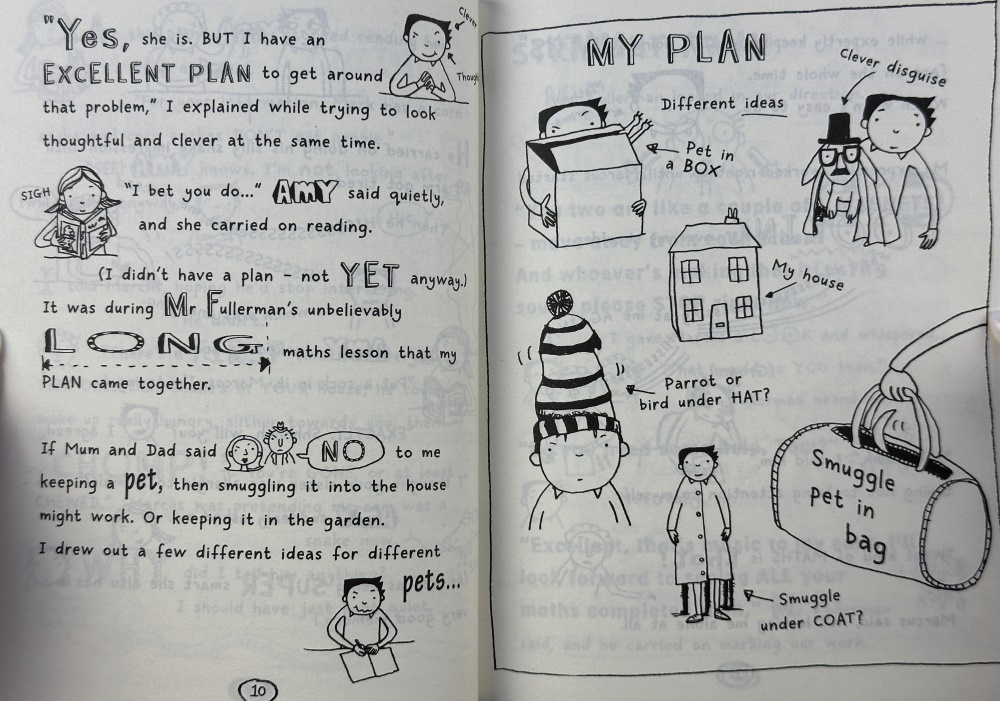 "Yes, she is. BUT I have an
EXCELLENT PLAN to get around
that problem," I explained while trying to look
thoughtful and clever at the same time.
Clever
SIGH
"I bet you do..." AMY said quietly,
and she carried on reading.
(I didn't have a plan - not YET anyway.)
It was during Mr Fullerman's unbelievably
LONG maths lesson that my
PLAN came together.
If Mum and Dad said NO to me
keeping a pet, then smuggling it into the house
might work. Or keeping it in the garden.
I drew out a few different ideas for different
pets...
10
MY PLAN
Different ideas
Clever disguise
Pet in
a BOX
My house
Parrot or
bird under HAT?
Smuggle
pet in
bag
Smuggle
under COAT?